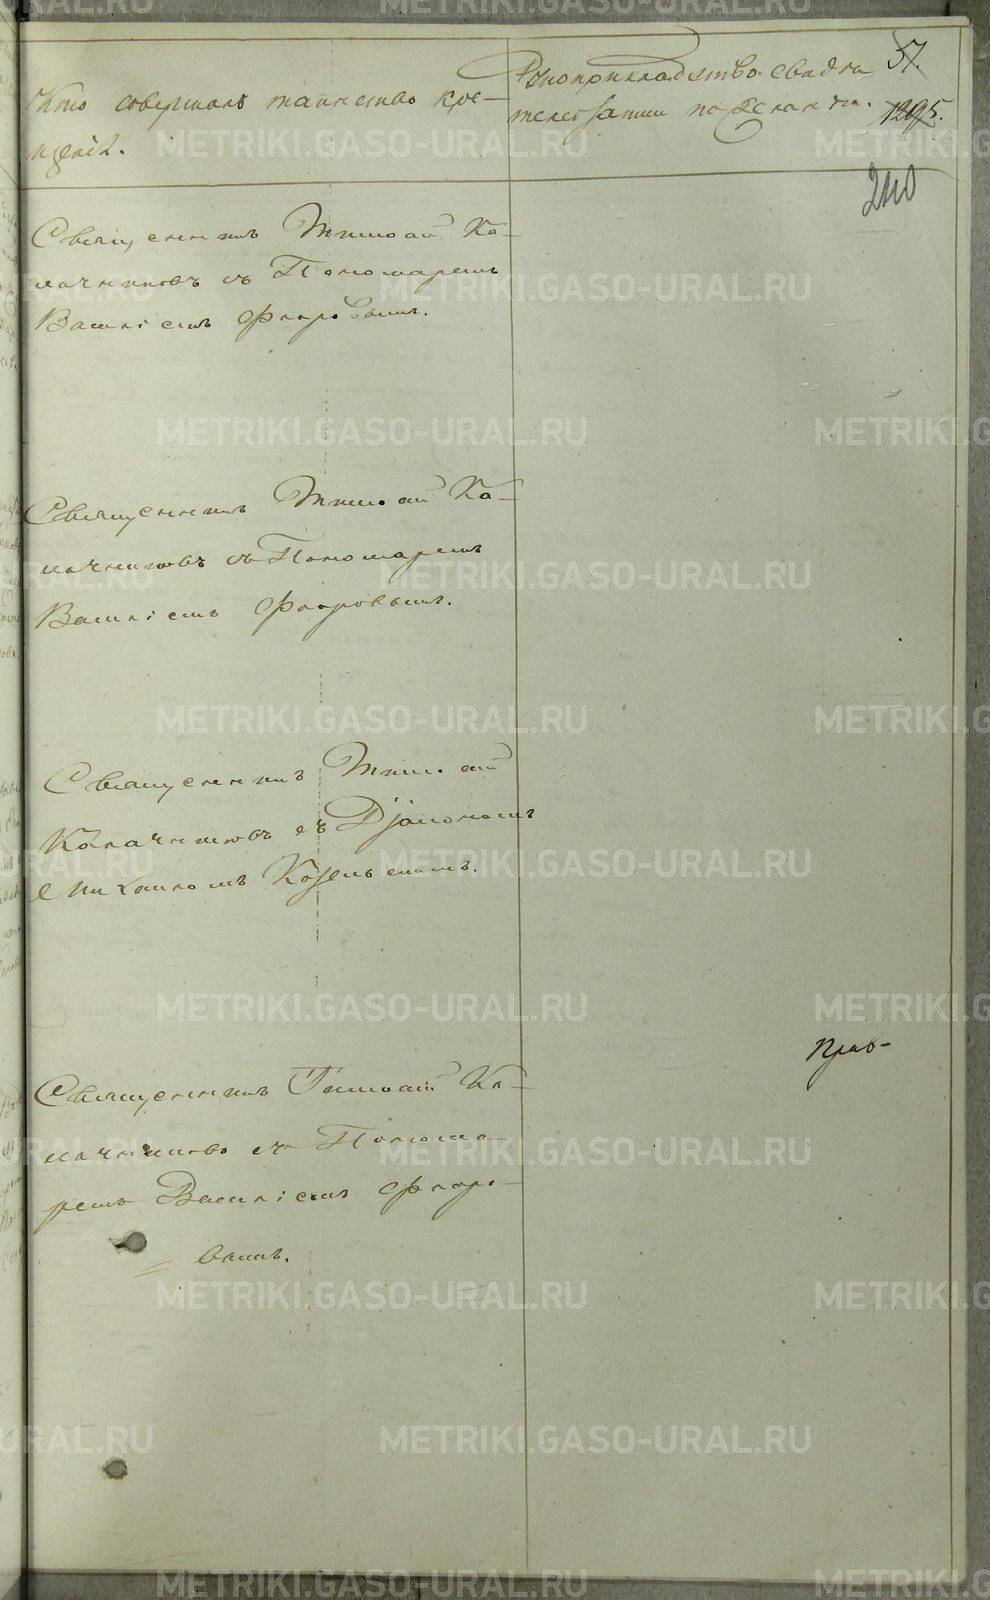 Кто совершалъ таинство кре-
щенія.
Рукоприкладство свидѣ-
телей записи по желанію.
57.
1295.
240
Священникъ Тимоѳей Ка-
лачниковъ съ Пономаремъ
Василіемъ Флоровымъ.
Священникъ Тимоѳей Ка-
лачниковъ съ Пономаремъ
Василіемъ Флоровымъ.
Священникъ Тимоѳей
Калачниковъ съ Діакономъ
Михаиломъ
Священникъ Тимоѳей Ка-
лачниковъ съ Понома-
ремъ Василіемъ Флоро-
вымъ.
METRIKI.GASO-URAL.RU